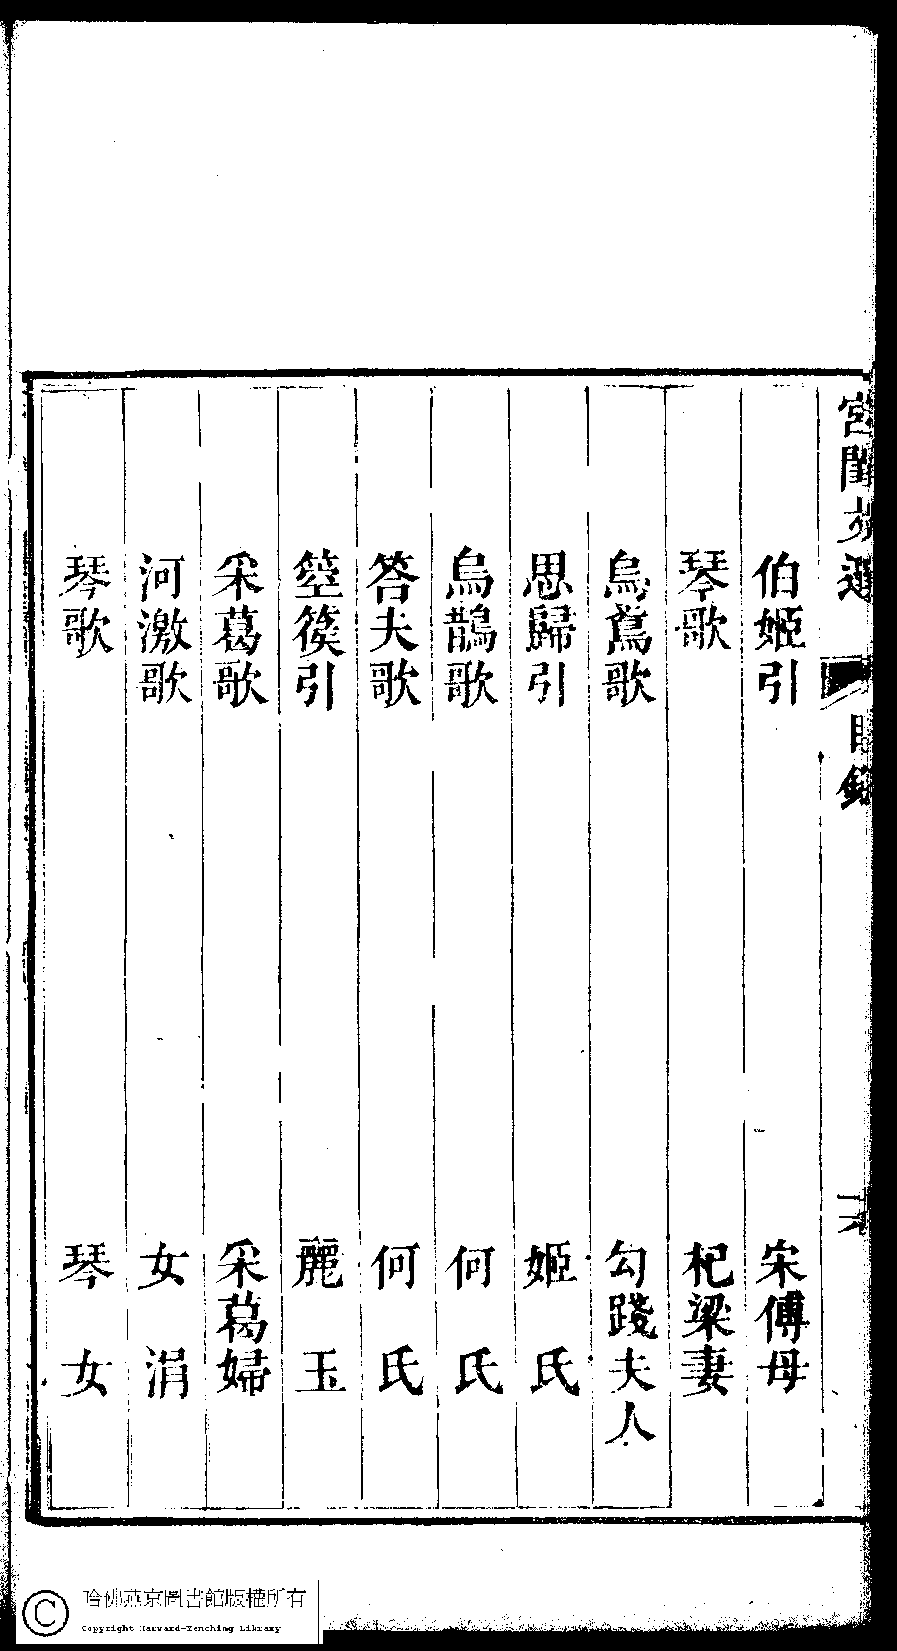 宮閨 選 目錄
伯姬引 宋傅母
琴歌 杞梁妻
烏鳶歌 勾踐夫人
思歸引 姬氏
烏鵲歌 何氏
答夫歌 何氏
箜篌引 麗玉
采葛歌 采葛婦
河激歌 女涓
琴歌 琴女
哈佛燕京圖書館版權所有
Copyright Harvard-Yenching Library